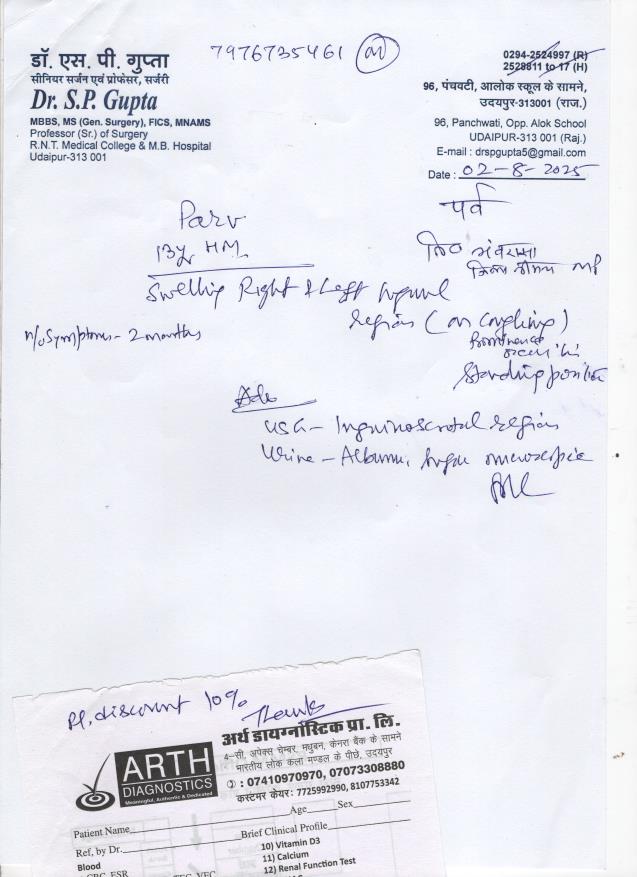 7976735461 (M)
डॉ. एस. पी. गुप्ता
सीनियर सर्जन एवं प्रोफेसर, सर्जरी
Dr. S.P. Gupta
MBBS, MS (Gen. Surgery), FICS, MNAMS
Professor (Sr.) of Surgery
R.N.T. Medical College & M.B. Hospital
Udaipur-313 001
0294-2524997 (R)
2528811 to 17 (H)
96, पंचवटी, आलोक स्कूल के सामने,
उदयपुर-313001 (राज.)
96, Panchwati, Opp. Alok School
UDAIPUR-313 001 (Raj.)
E-mail : drspgupta5@gmail.com
Date : 02-8-2025
पर्व
Parv
13y HM
Swelling Right & Left Inguinal
region (on coughing)
Prominence
standing position
n/o Symptoms - 2 months
Adv
USG - Inguinoscrotal region
Urine - Albumin, sugar microscopic
Pl. discount 10%
Thanks
ARTH
DIAGNOSTICS
Meaningful, Authentic & Dedicated
अर्थ डायग्नोस्टिक प्रा. लि.
4-सी, अपेक्स चेम्बर, मधुबन, केनरा बैंक के सामने
भारतीय लोक कला मण्डल के पीछे, उदयपुर
: 07410970970, 07073308880
कस्टमर केयर: 7725992990, 8107753342
Patient Name Age Sex
Ref, by Dr. Brief Clinical Profile
Blood
10) Vitamin D3
CBC, ESR
11) Calcium
12) Renal Function Test